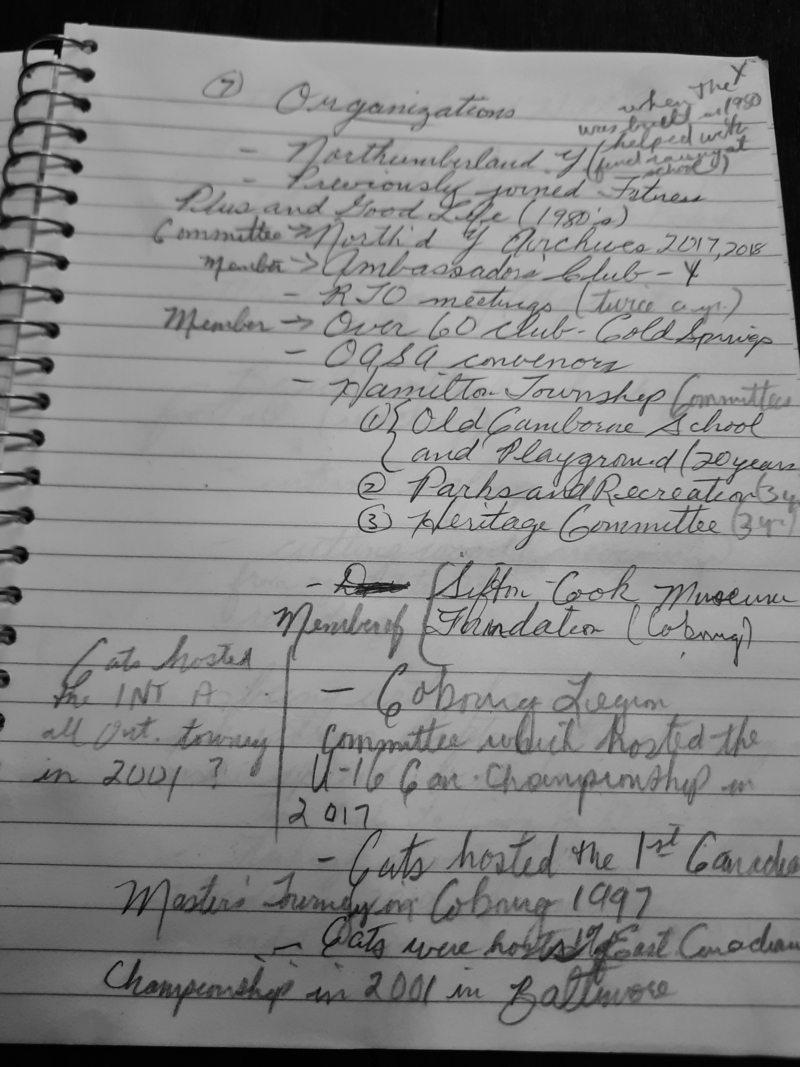 ⑦ Organizations
when the Y
was built in 1980
helped with
(fund raising at
school)
- Northumberland Y
- Previously joined Fitness
Plus and Good Life (1980's)
Committee → North'd Y Archives 2017, 2018
Member → Ambassadors Club - Y
- RTO meetings (twice a yr.)
Member → Over 60 club - Cold Springs
- OASA convenors
- Hamilton Township Committees
① { Old Camborne School
and Playground (20 years
② Parks and Recreation (3 y
③ Heritage Committee (3 yr.)
- { Sifton-Cook Museum
Member of { Foundation (Cobourg)
Cats hosted
the INT A
all Ont. tourney
in 2001?
- Cobourg Legion
Committee which hosted the
U-16 Can. Championship in
2017
- Cats hosted the 1st Canadia
Master's Tourney in Cobourg 1997
- Cats were hosts East Canadian
Championship in 2001 in Baltimore